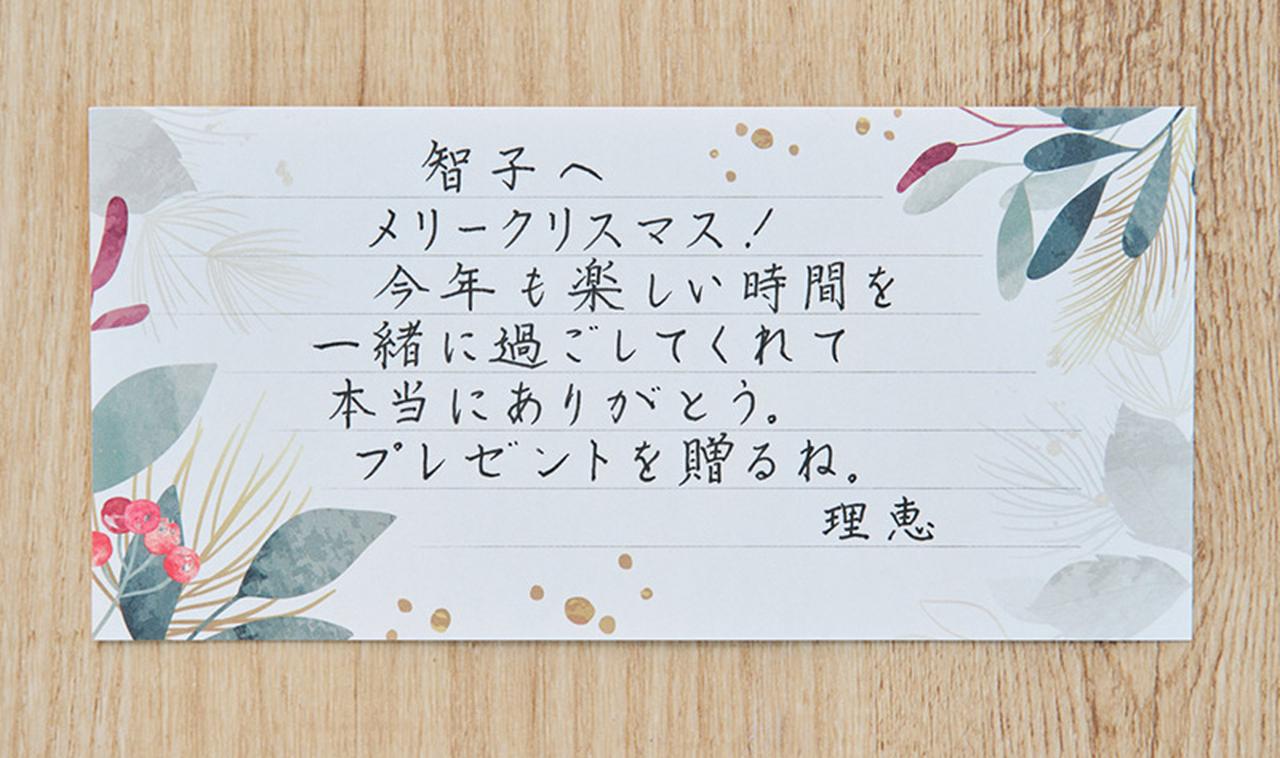 智子へ
メリークリスマス!
今年も楽しい時間を
一緒に過ごしてくれて
本当にありがとう。
プレゼントを贈るね。
理恵